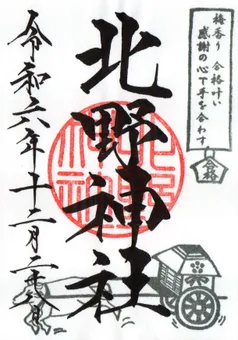 梅香り 合格叶い
感謝の心で手を合わす
合格
北野神社
令和六年十二月二十八日